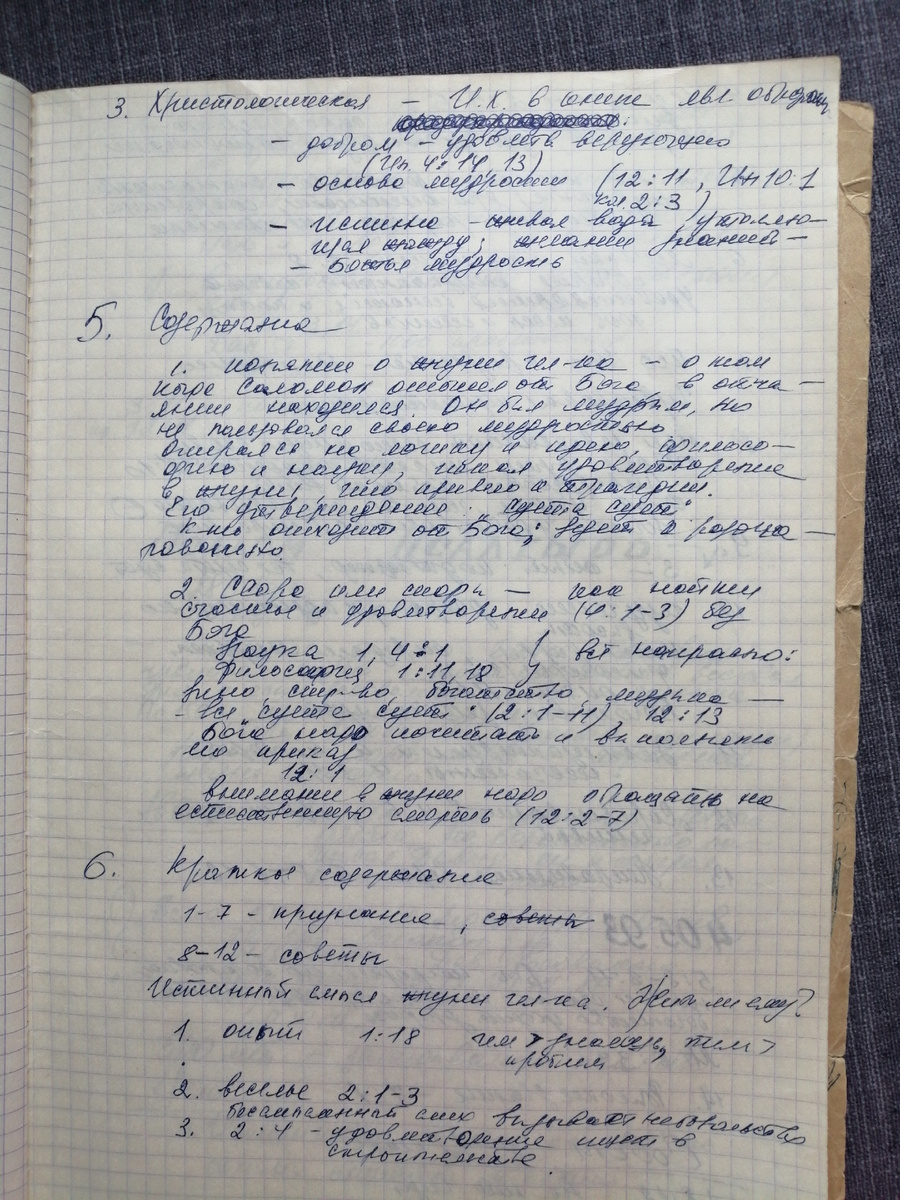 3. Христологическая – И.Х. в книге явл. образом
– добром – удовлетв верующего
(Ин. 4:14, 13)
– основа мудрости (12:11, Ин 10:1
Кол. 2:3)
– истинно – живая вода, утоляю-
щая жажду;
– Божья мудрость
5. Содержание
1. понятии о жизни чел-ка – о том
Соломон от Бога в отча-
янии находился. Он был мудрым, но
не пользовался своею мудростью
Опирался на логику и идею, филосо-
фию и науку, искал удовлетворение
в жизни, что привело к трагедии.
Его утверждение: "суета сует"
Кто отходит от Бога, идет к разоча-
рованию
2. Скоро или скоры — как найти
счастье и удовлетворении (4:1-3) без
Бога
Наука 1, 4:1 } всё напрасно:
Философия 1:11,18
Вино, стр-во, богатство музыка —
– всё "суета сует" (2:1-11), 12:13
Бога надо почитать и выполнять
его приказ
12:1
внимании в жизни надо обращать на
естественную смерть (12:2-7)
6. Краткое содержание
1-7 – признания, советы
8-12 – советы
Истинный смысл жизни чел-ка. Есть ли смысл?
1. опыт 1:18 чем > знаешь, тем >
проблем
2. веселье 2:1-3
смех вызывает недовольство
3. 2:4 – удовлетворение ищет в
строительстве